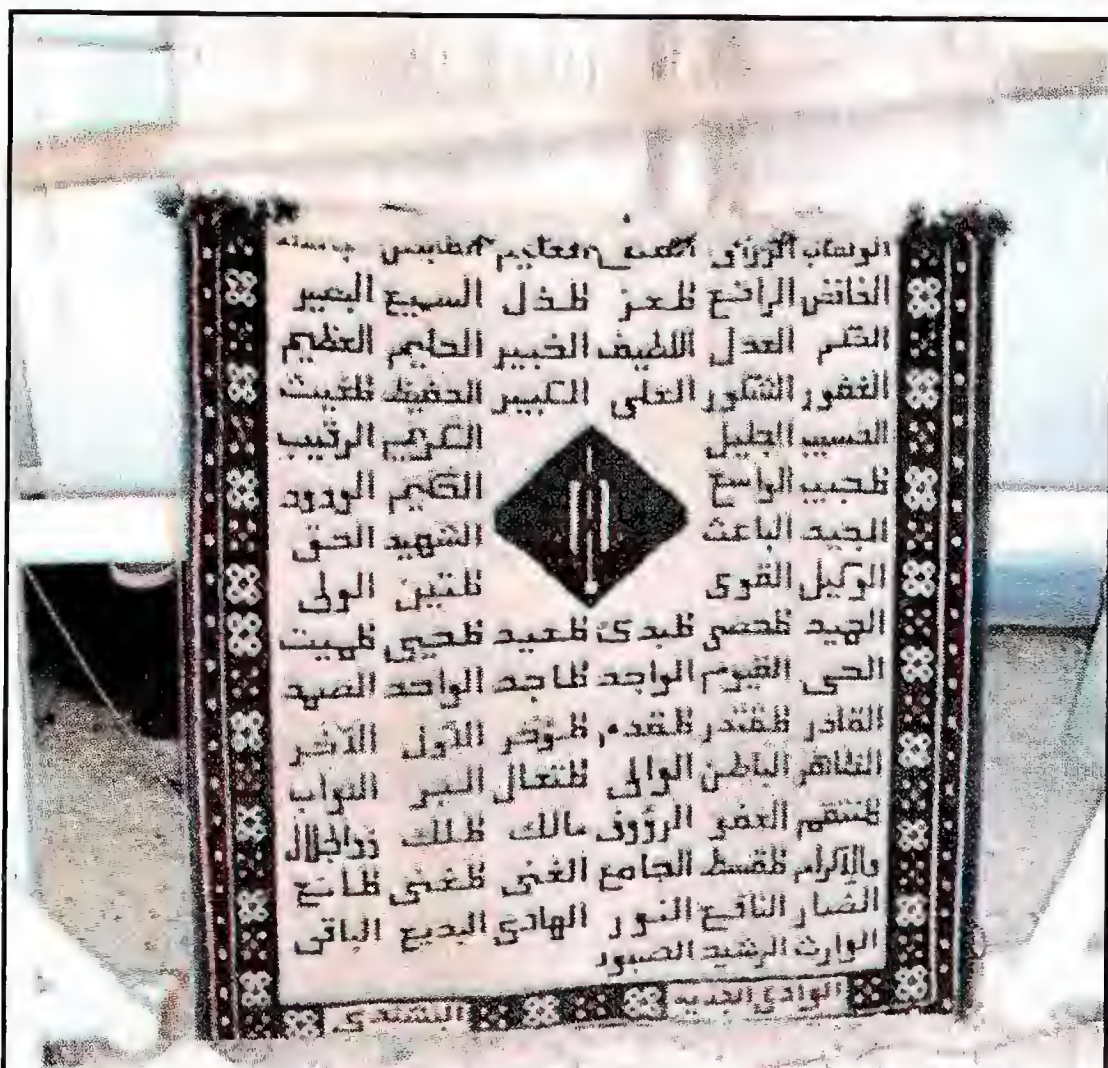 الوهاب الرزاق الفتاح العليم القابض
الخافض الرافع المعز المذل السميع البصير
الحكم العدل اللطيف الخبير الحليم العظيم
الغفور الشكور العلى الكبير الحفيظ المقيت
الحسيب الجليل الكريم الرقيب
المجيب الواسع الحكيم الودود
المجيد الباعث الشهيد الحق
الوكيل القوى المتين الولى
الحميد المحصى المبدئ المعيد المحيى المميت
الحى القيوم الواجد الماجد الواحد الصمد
القادر المقتدر المقدم المؤخر الأول الآخر
الظاهر الباطن الوالى المتعال البر التواب
المنتقم العفو الرؤوف مالك الملك ذو الجلال
والاكرام المقسط الجامع الغنى المغنى المانع
الضار النافع النور الهادى البديع الباقى
الوارث الرشيد الصبور
الوادى الجديد البشندى